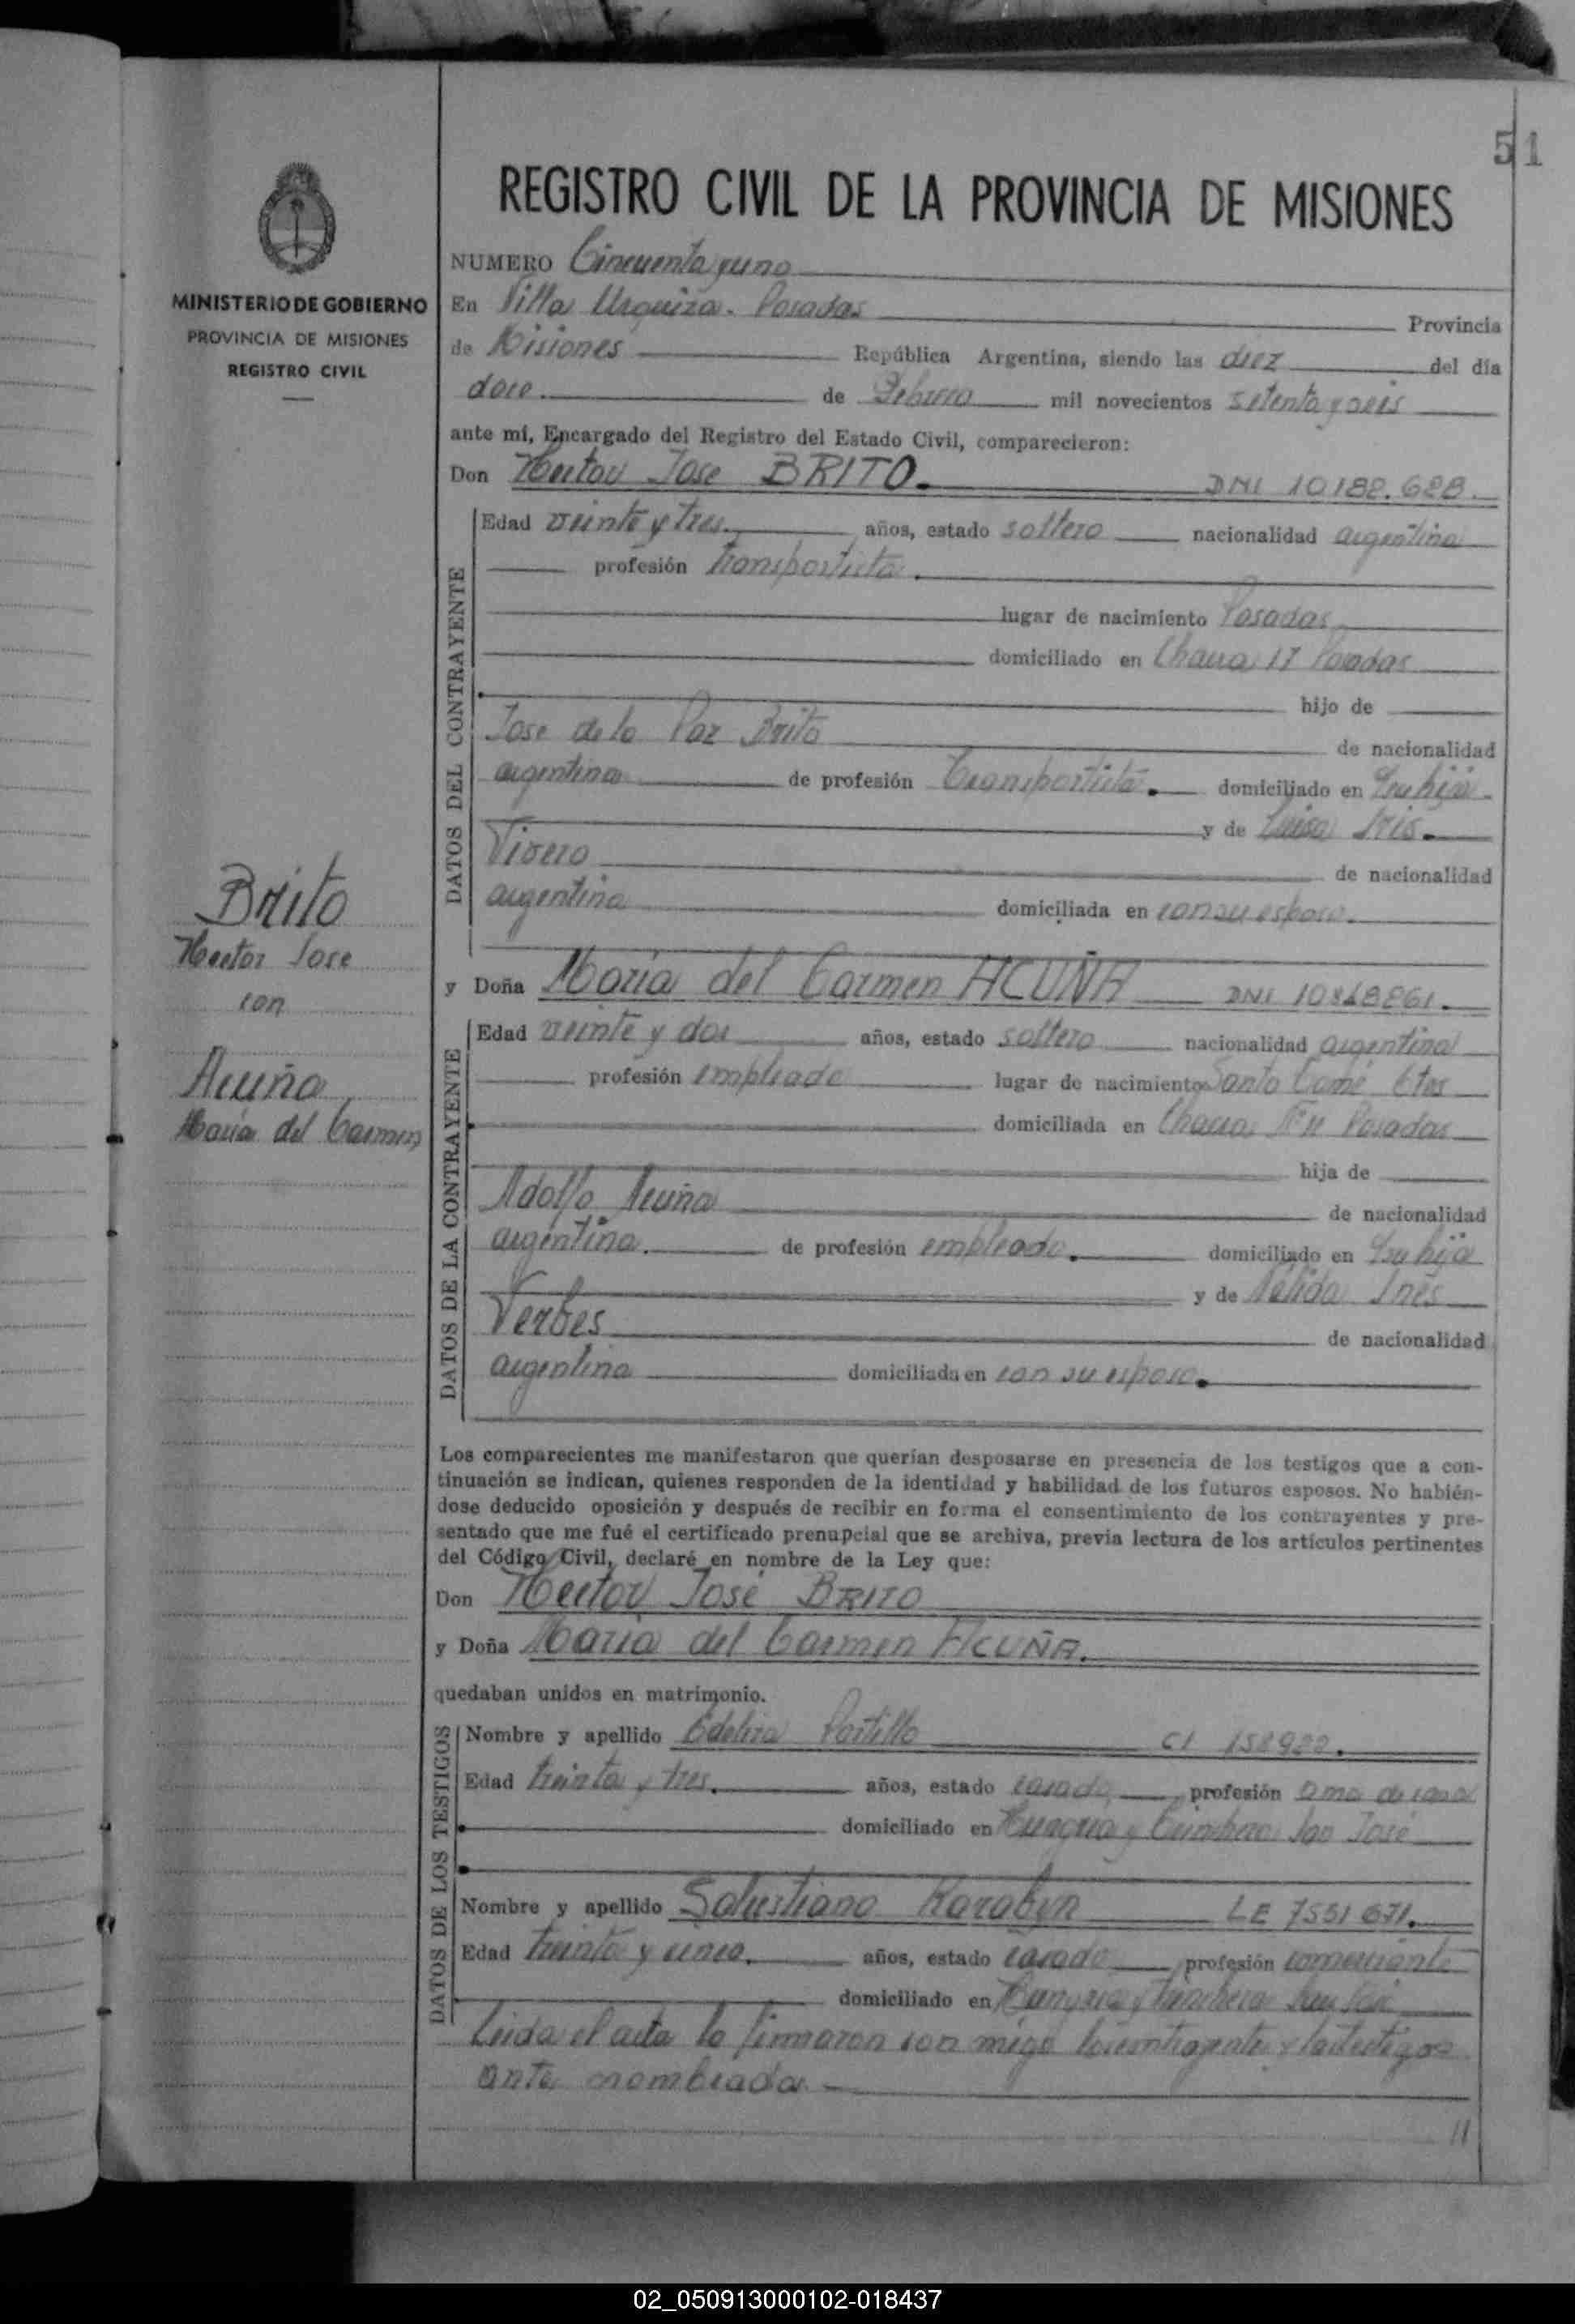 51
REGISTRO CIVIL DE LA PROVINCIA DE MISIONES
MINISTERIO DE GOBIERNO
PROVINCIA DE MISIONES
REGISTRO CIVIL
NUMERO Cincuenta y uno
En Villa Urquiza. Posadas Provincia
de Misiones República Argentina, siendo las diez del día
doce de Febrero mil novecientos setenta y seis
ante mí, Encargado del Registro del Estado Civil, comparecieron:
Don Hector Jose BRITO. DNI 10182.628
DATOS DEL CONTRAYENTE
Edad veinte y tres. años, estado soltero nacionalidad argentina
profesión transportista.
lugar de nacimiento Posadas
domiciliado en Chacra 17 Posadas
hijo de
Jose de la Paz Brito de nacionalidad
argentina de profesión transportista. domiciliado en
y de Luisa Iris.
Vivero de nacionalidad
argentina domiciliada en con su esposo.
Brito
Hector Jose
con
Acuña
Maria del Carmen
y Doña Maria del Carmen ACUÑA DNI
DATOS DE LA CONTRAYENTE
Edad veinte y dos años, estado soltera nacionalidad argentina
profesión empleada lugar de nacimiento Santo Tomé Ctes
domiciliada en Chacra Posadas
hija de
Adolfo Acuña de nacionalidad
argentina. de profesión empleado. domiciliado en
y de Nélida Inés
Verbes de nacionalidad
argentina domiciliada en con su esposo.
Los comparecientes me manifestaron que querían desposarse en presencia de los testigos que a con-
tinuación se indican, quienes responden de la identidad y habilidad de los futuros esposos. No habién-
dose deducido oposición y después de recibir en forma el consentimiento de los contrayentes y pre-
sentado que me fué el certificado prenupcial que se archiva, previa lectura de los artículos pertinentes
del Código Civil, declaré en nombre de la Ley que:
Don Hector José BRITO
y Doña Maria del Carmen ACUÑA.
quedaban unidos en matrimonio.
DATOS DE LOS TESTIGOS
Nombre y apellido Portillo CI
Edad treinta y tres. años, estado casada profesión ama de casa
domiciliado en San José
Nombre y apellido Salustiano Karabin LE 7551671.
Edad treinta y cinco. años, estado casado profesión comerciante
domiciliado en
Leida el acta la firmaron con migo los contrayentes y los testigos
antes nombrados
11
02_050913000102-018437